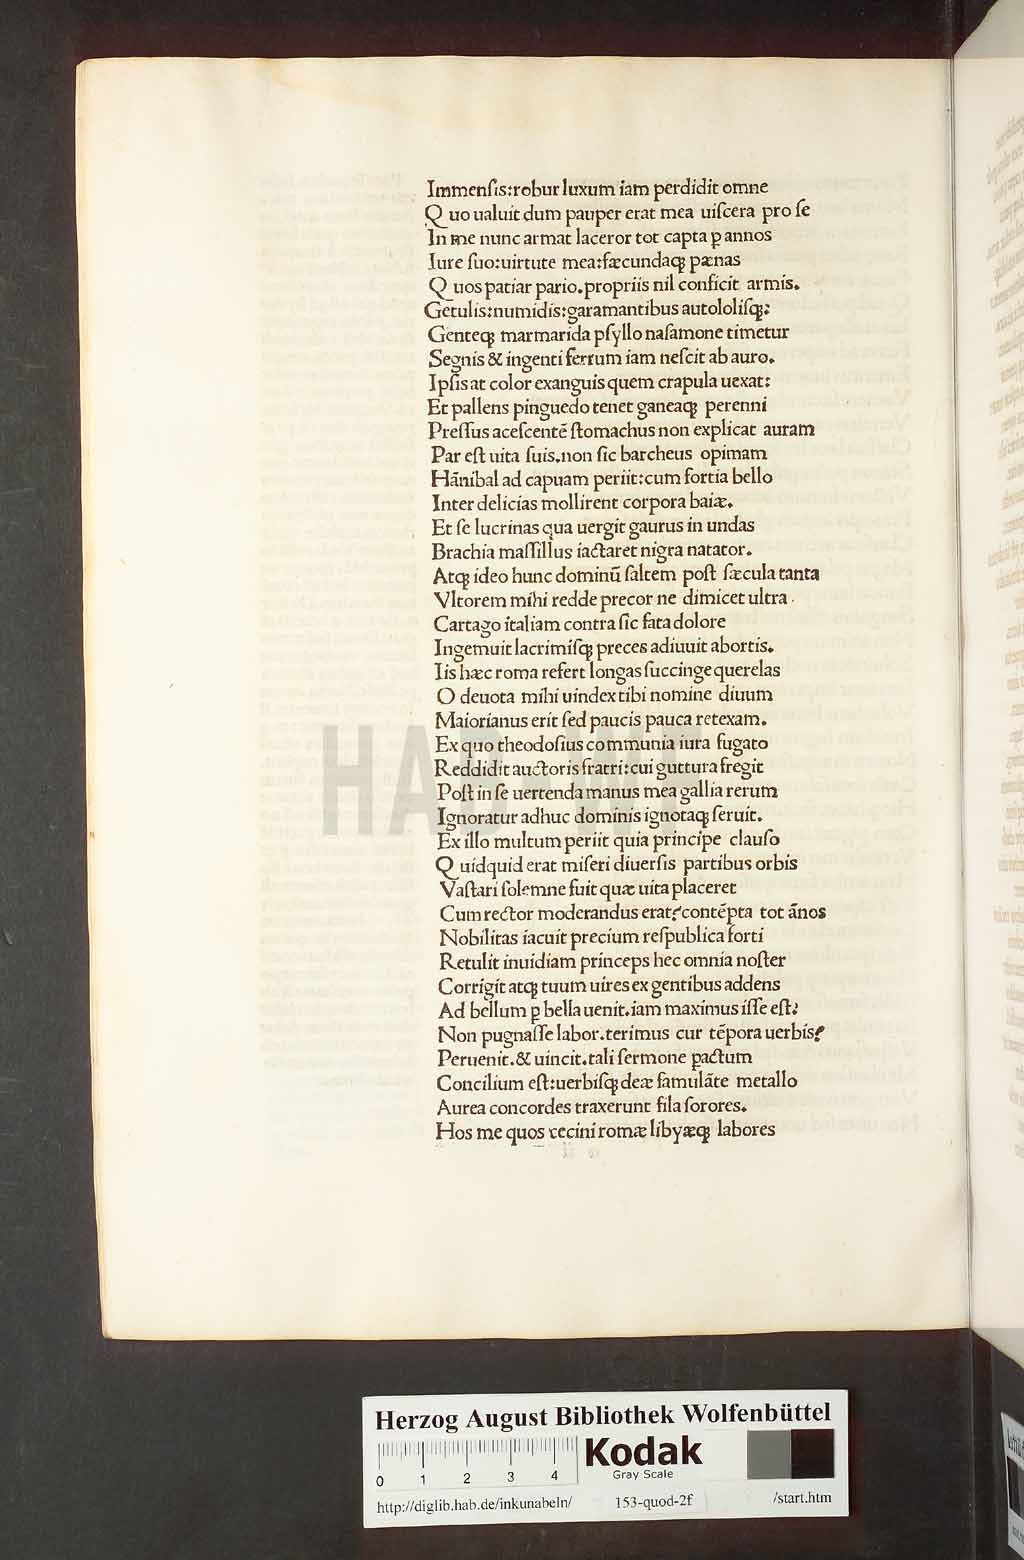 Immenſis:robur luxum iam perdidit omne
Quo ualuit dum pauper erat mea uiſcera pro ſe
In me nunc armat laceror tot capta ꝑ annos
Iure ſuo:uirtute mea:fæcundaqꝫ pænas
Quos patiar pario.propriis nil conficit armis.
Getulis:numidis:garamantibus autololiſqꝫ:
Genteqꝫ marmarida pſyllo naſamone timetur
Segnis & ingenti ferrum iam neſcit ab auro.
Ipſis at color exanguis quem crapula uexat:
Et pallens pinguedo tenet ganeaqꝫ perenni
Preſſus aceſcentē ſtomachus non explicat auram
Par eſt uita ſuis.non ſic barcheus opimam
Hānibal ad capuam periit:cum fortia bello
Inter delicias mollirent corpora baiæ.
Et ſe lucrinas qua uergit gaurus in undas
Brachia maſſillus iactaret nigra natator.
Atqꝫ ideo hunc dominū ſaltem poſt ſæcula tanta
Vltorem mihi redde precor ne dimicet ultra.
Cartago italiam contra ſic fata dolore
Ingemuit lacrimiſqꝫ preces adiuuit abortis.
Iis hæc roma refert longas ſuccinge querelas
O deuota mihi uindex tibi nomine diuum
Maiorianus erit ſed paucis pauca retexam.
Ex quo theodoſius communia iura fugato
Reddidit auctoris fratri:cui guttura fregit
Poſt in ſe uertenda manus mea gallia rerum
Ignoratur adhuc dominis ignotaqꝫ ſeruit.
Ex illo multum periit quia principe clauſo
Quidquid erat miſeri diuerſis partibus orbis
Vaſtari ſolemne fuit quæ uita placeret
Cum rector moderandus erat?contēpta tot ānos
Nobilitas iacuit precium reſpublica forti
Retulit inuidiam princeps hec omnia noſter
Corrigit atqꝫ tuum uires ex gentibus addens
Ad bellum ꝑ bella uenit.iam maximus iſſe eſt?
Non pugnaſſe labor.terimus cur tēpora uerbis?
Peruenit.& uincit.tali ſermone pactum
Concilium eſt:uerbiſqꝫ deæ famulāte metallo
Aurea concordes traxerunt fila ſorores.
Hos me quos cecini romæ libyæqꝫ labores
HAB WF
Herzog August Bibliothek Wolfenbüttel
0 1 2 3 4
Kodak
Gray Scale
http://diglib.hab.de/inkunabeln/ 153-quod-2f /start.htm